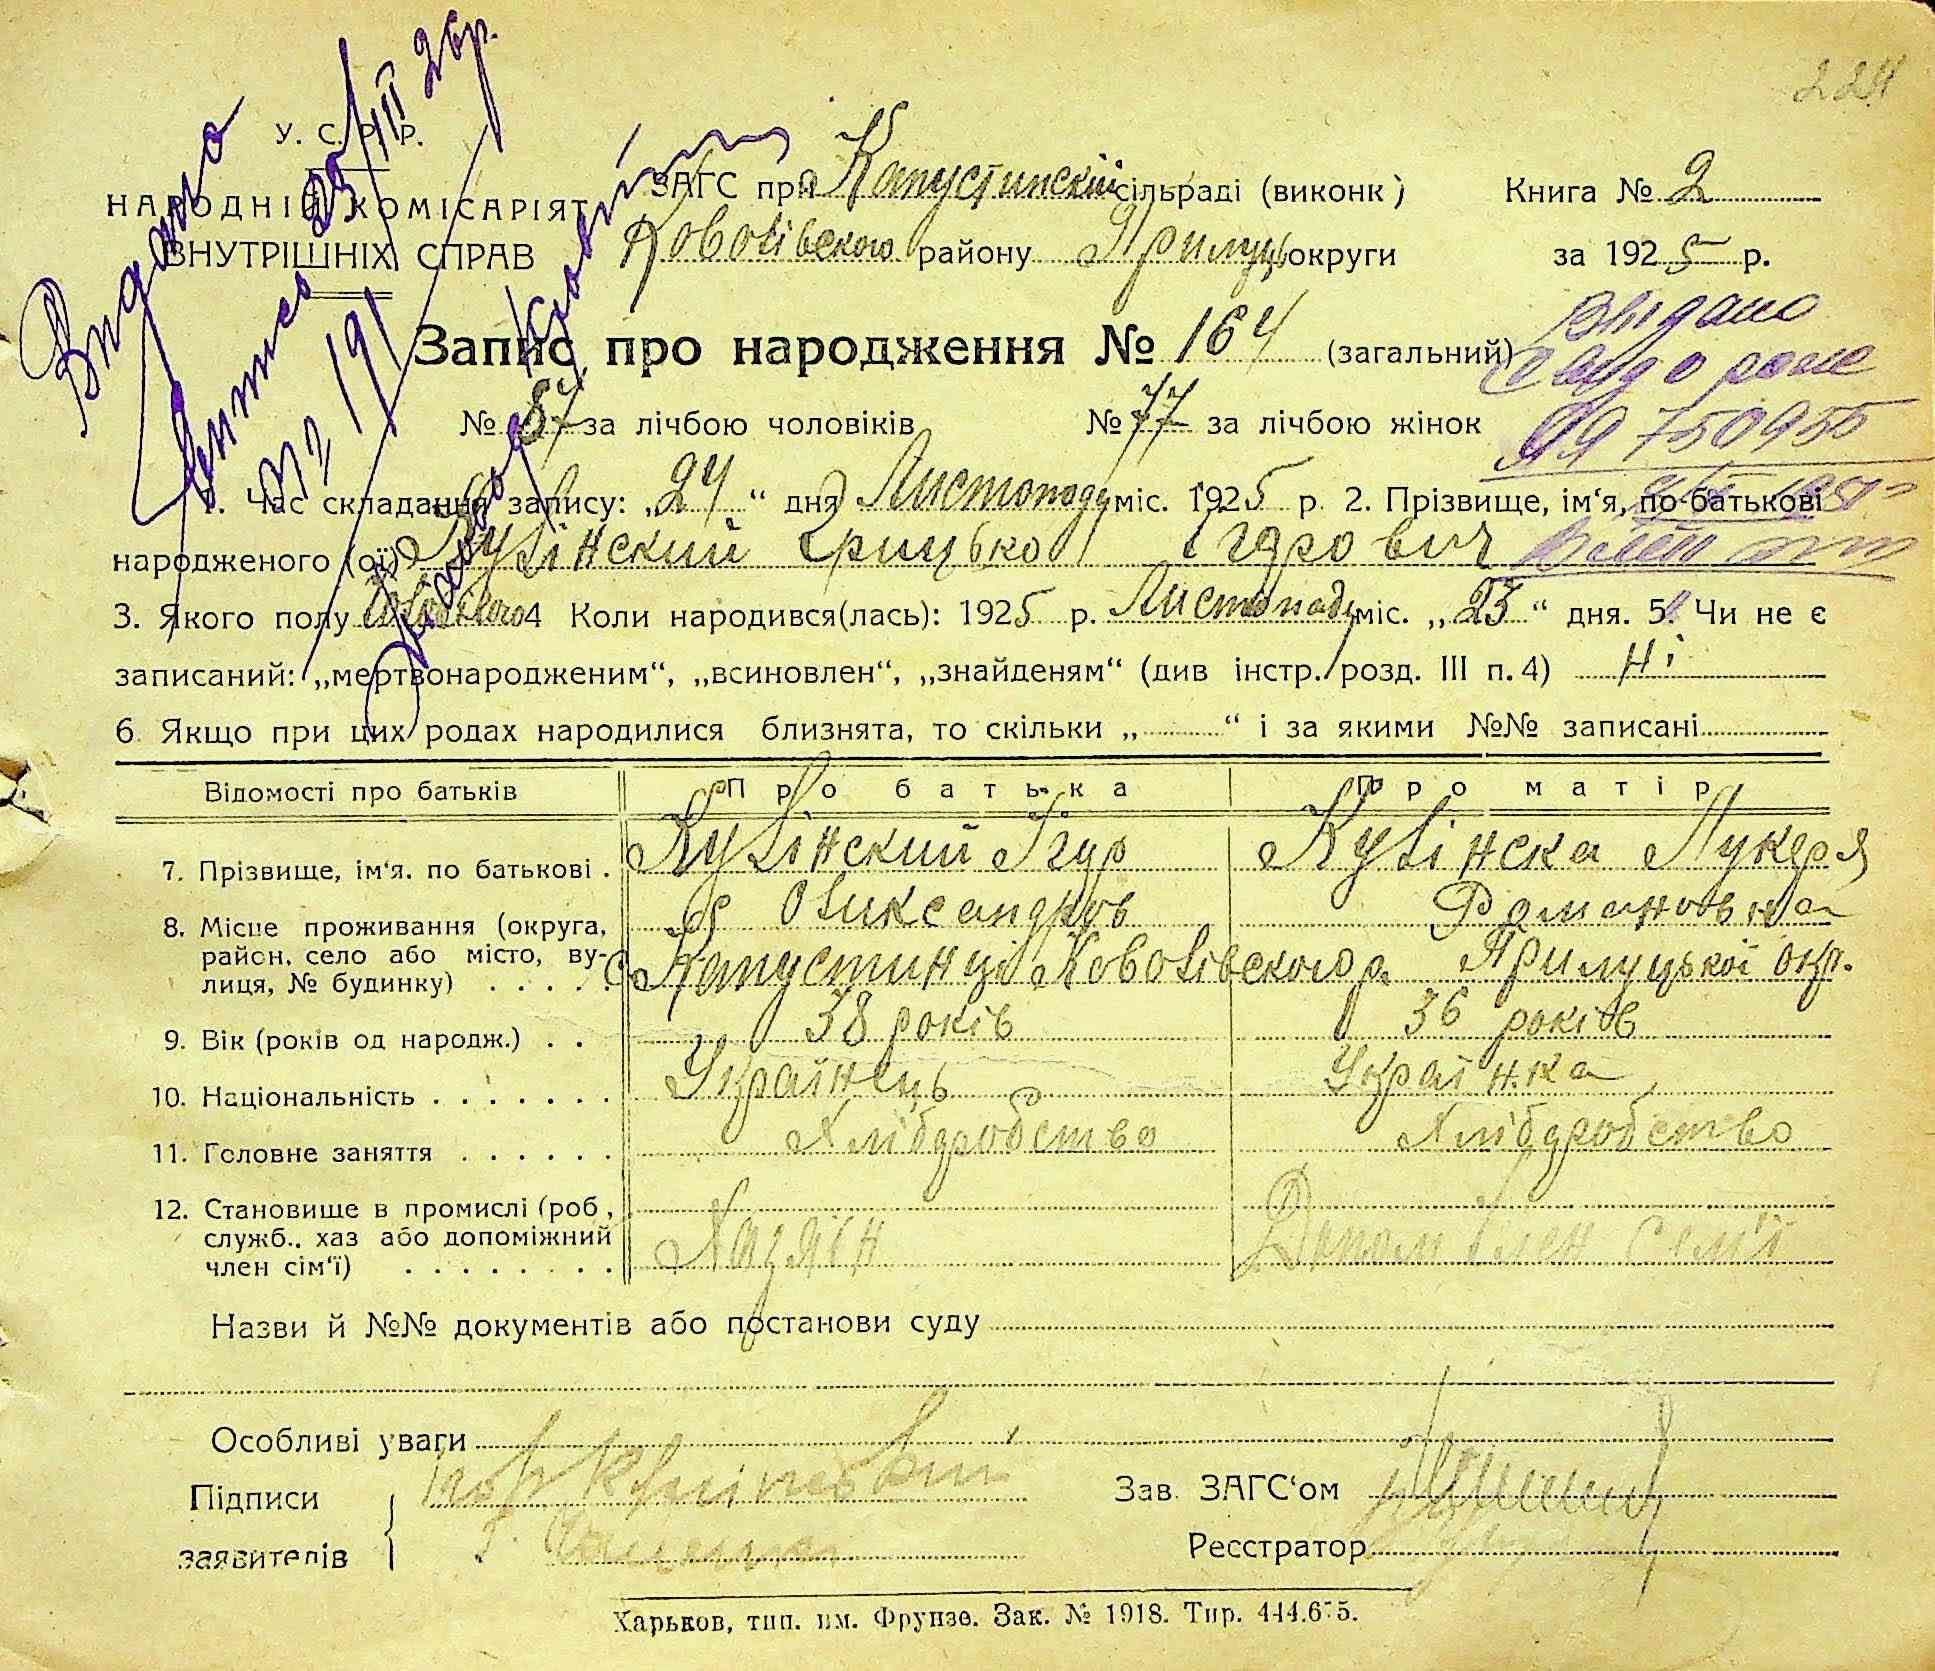 224
У. С. Р. Р.
НАРОДНІЙ КОМІСАРІЯТ
ВНУТРІШНІХ СПРАВ
Видано
25/III 26р.
№ 191
ЗАГС при Капустинскій сільраді (виконк)
Ковалівського району Прилуць округи
Книга № 2
за 1925 р.
Запис про народження № 164 (загальний)
№ 87 за лічбою чоловіків № 77 за лічбою жінок
Видано
свид о роне
ЯЯ 750955
1. Час складання запису: „24“ дня Листопаду міс. 1925 р. 2. Прізвище, ім‘я, по-батькові
народженого (ої) Кулінский Грицько Ігдрович
3. Якого полу Чоловічого 4 Коли народився(лась): 1925 р. Листопаду міс. „23“ дня. 5. Чи не є
записаний: „мертвонародженим“, „всиновлен“, „знайденям“ (див інстр. розд. III п. 4) Ні
6. Якщо при цих родах народилися близнята, то скільки „ “ і за якими №№ записані
Відомості про батьків Про батька Про матір
7. Прізвище, ім‘я. по батькові . Кулінский Ігдр Олександров Кулінска Лукеря Романовна
8. Місце проживання (округа, район, село або місто, вулиця, № будинку) . . . . . с. Капустинці Ковалівского р. Прилуцької окр.
9. Вік (років од народж.) . . 38 років 36 років
10. Національність . . . . . . . Українець Українка
11. Головне заняття . . . . . . Хлібдробство Хлібдробство
12. Становище в промислі (роб, служб., хаз або допоміжний член сім‘ї) . . . . . . . . Хазяїн Допом член сем'ї
Назви й №№ документів або постанови суду
Особливі уваги
Підписи
заявителів
Зав. ЗАГС‘ом
Реєстратор
Харьков, тип. им. Фрунзе. Зак. № 1918. Тир. 444.675.